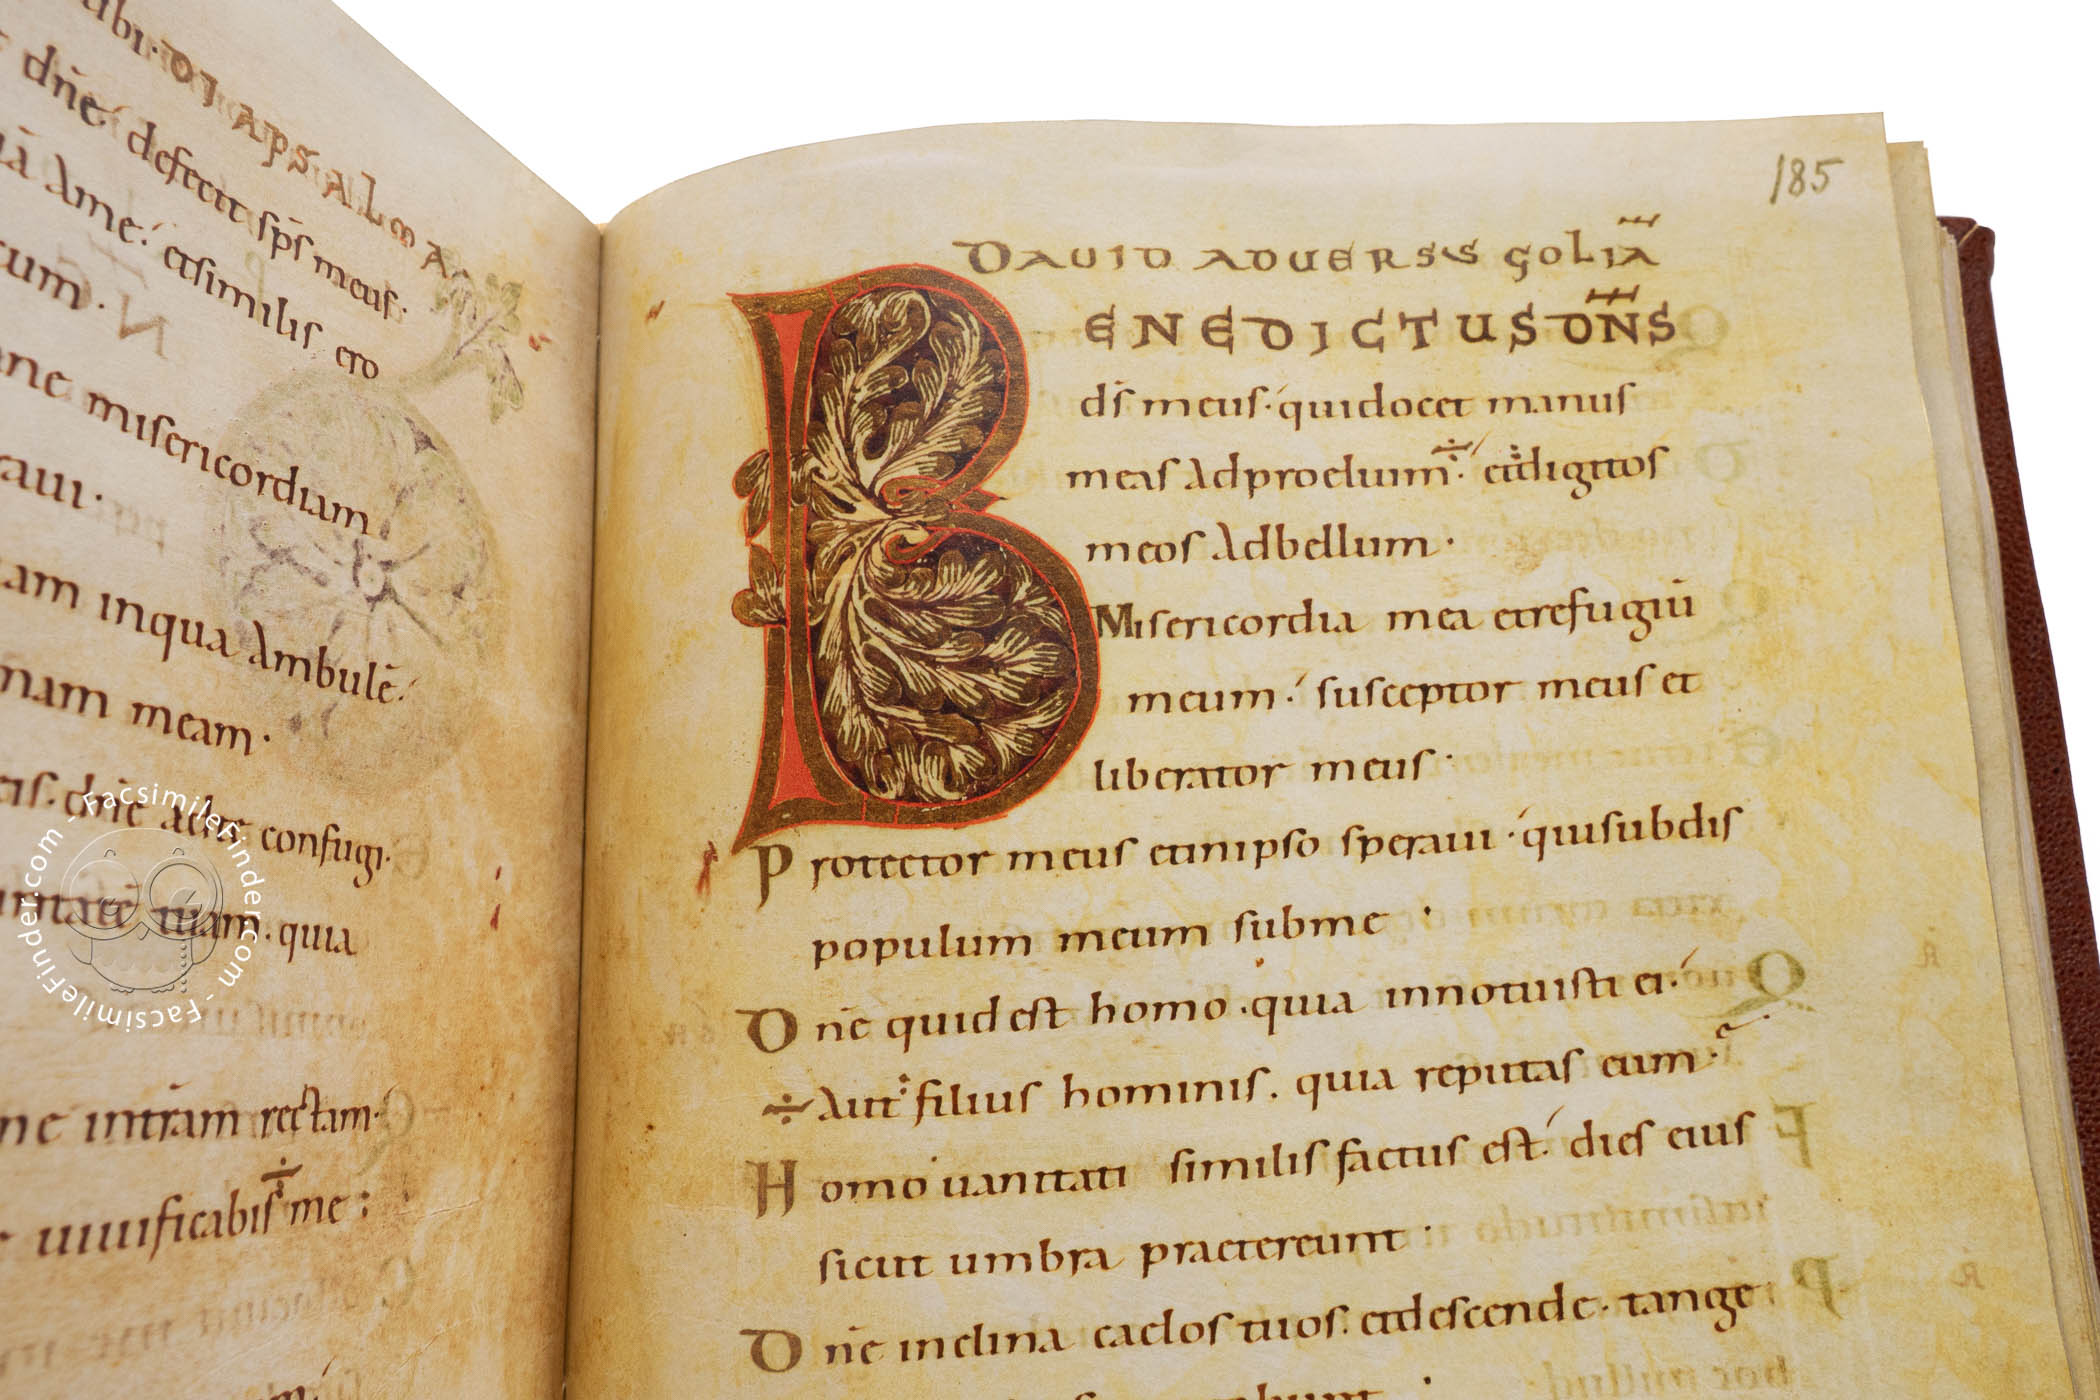 ubi· DIAPSALMA·
dn̄e· defecit sp̄s meus·
a me·́ et similis ero
cum·
ane misericordiam
raui·
am in qua ambulē·́
mam meam·
dn̄e ad te confugi·
tuam· quia
ne in tr̄am rectam·
÷ uiuificabis : me :
185
DAUID ADUERSUS GOLIĀ
BENEDICTUS DN̄S
ds̄ meus·́ qui docet manus
meas ad proelium·́ ÷ et : digitos
meos ad bellum·
Misericordia mea et refugiū
meum·́ susceptor meus et
liberator meus·
Protector meus et in ipso speraui·́ qui subdis
populum meum sub me·
Dn̄e quid est homo· quia innotuisti ei·́
÷ aut : filius hominis, quia reputas eum·
Homo uanitati similis factus est·́ dies eius
sicut umbra praetereunt·
Dn̄e inclina caelos tuos, et descende· tange
FacsimileFinder.com - FacsimileFinder.com -